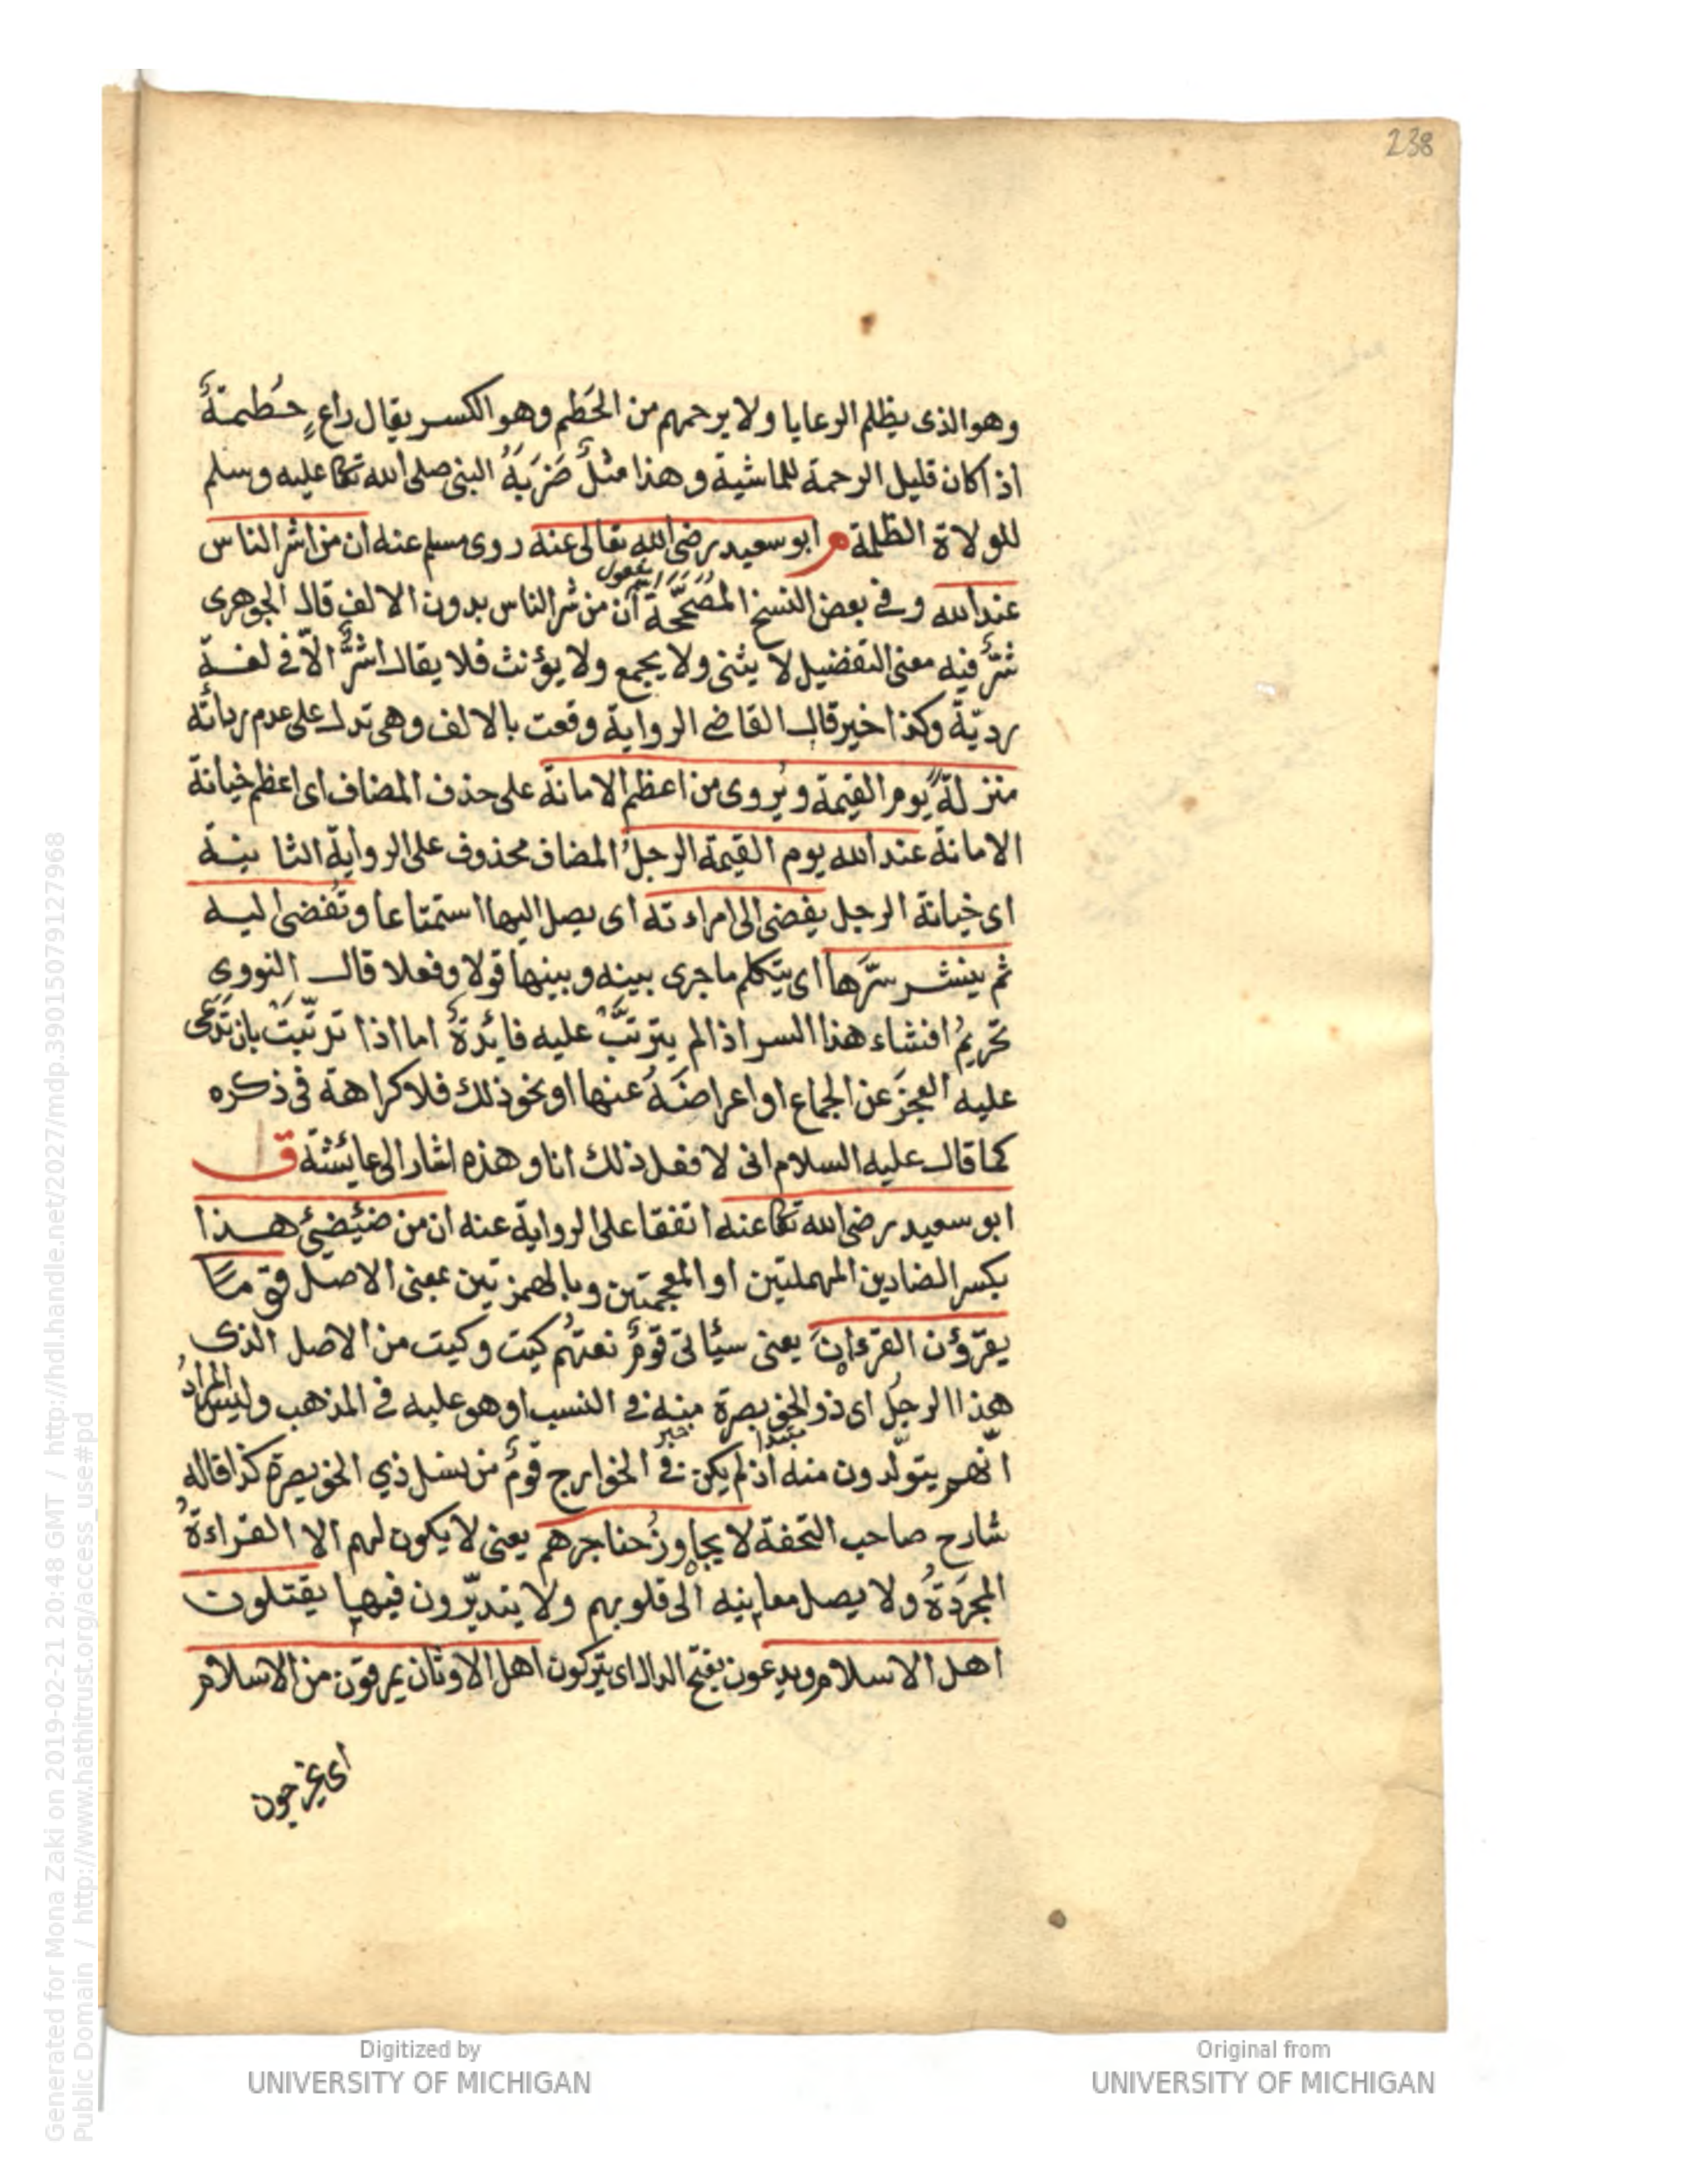 238
وهو الذى يظلم الرعايا ولا يرحمهم من الحَطم وهو الكسر يقال راعٍ حُطمةٌ
اذا كان قليل الرحمة للماشية وهذا مثلٌ ضَرَبَهُ النبى صلى الله تعا عليه وسلم
للولاة الظلمة م ابو سعيد رضى الله تعالى عنه روى مسلم عنه ان من اشر الناس
عند الله وفى بعض النسخ المُصَحَّحَة ان من شر الناس بدون الالف قال الجوهرى
شرٌّ فيه معنى التفضيل لا يثنى ولا يجمع ولا يؤنث فلا يقال اشرُّ الّا فى لغة
رديّة وكذا خير قال القاضى الرواية وقعت بالالف وهى تدل على عدم ردائته
منزلةً يوم القيمة ويُروى من اعظم الامانة على حذف المضاف اى اعظم خيانة
الامانة عند الله يوم القيمة الرجلُ المضاف محذوف على الرواية الثانية
اى خيانة الرجل يفضى الى امراءته اى يصل اليها استمتاعا وتُفضى اليه
ثم ينشر سرّها اى يتكلم ما جرى بينه وبينها قولا وفعلا قال النووى
تحريمُ افشاء هذا السر اذا لم يترتبّ عليه فائدةٌ اما اذا ترتّبَتْ بان تدّعى
عليه العجزَ عن الجماع او اعراضَهُ عنها او نحو ذلك فلا كراهة فى ذكره
كما قال عليه السلام انى لافعل ذلك انا وهذه اشار الى عائشة ق
ابو سعيد رضى الله تعا عنه اتفقا على الرواية عنه ان من ضئضئ هذا
بكسر الضادين المهملتين او المعجمتين وبالهمزتين بمعنى الاصل قوما
يقرؤن القرءان يعنى سيأتى قومٌ نعتهُم كيت وكيت من الاصل الذى
هذا الرجلُ اى ذو الخويصرة منه فى النسب او هو عليه فى المذهب وليس المرادُ
مبتدا خبر
انّهم يتولّدون منه اذ لم يكن فى الخوارج قومٌ من نسل ذي الخويصرة كذا قاله
شارح صاحب التحفة لا يجاوزُ حناجرهم يعنى لا يكون لهم الا القراءةُ
المجردةُ ولا يصل معانيه الى قلوبهم ولا يتدبّرون فيها يقتلون
اهل الاسلام ويدعون بفتح الدال اى يتركون اهل الاوثان يمرقون من الاسلام
اى يخرجون
Generated for Mona Zaki on 2019-02-21 20:48 GMT / http://hdl.handle.net/2027/mdp.39015079127968
Public Domain / http://www.hathitrust.org/access_use#pd
Digitized by
UNIVERSITY OF MICHIGAN
Original from
UNIVERSITY OF MICHIGAN